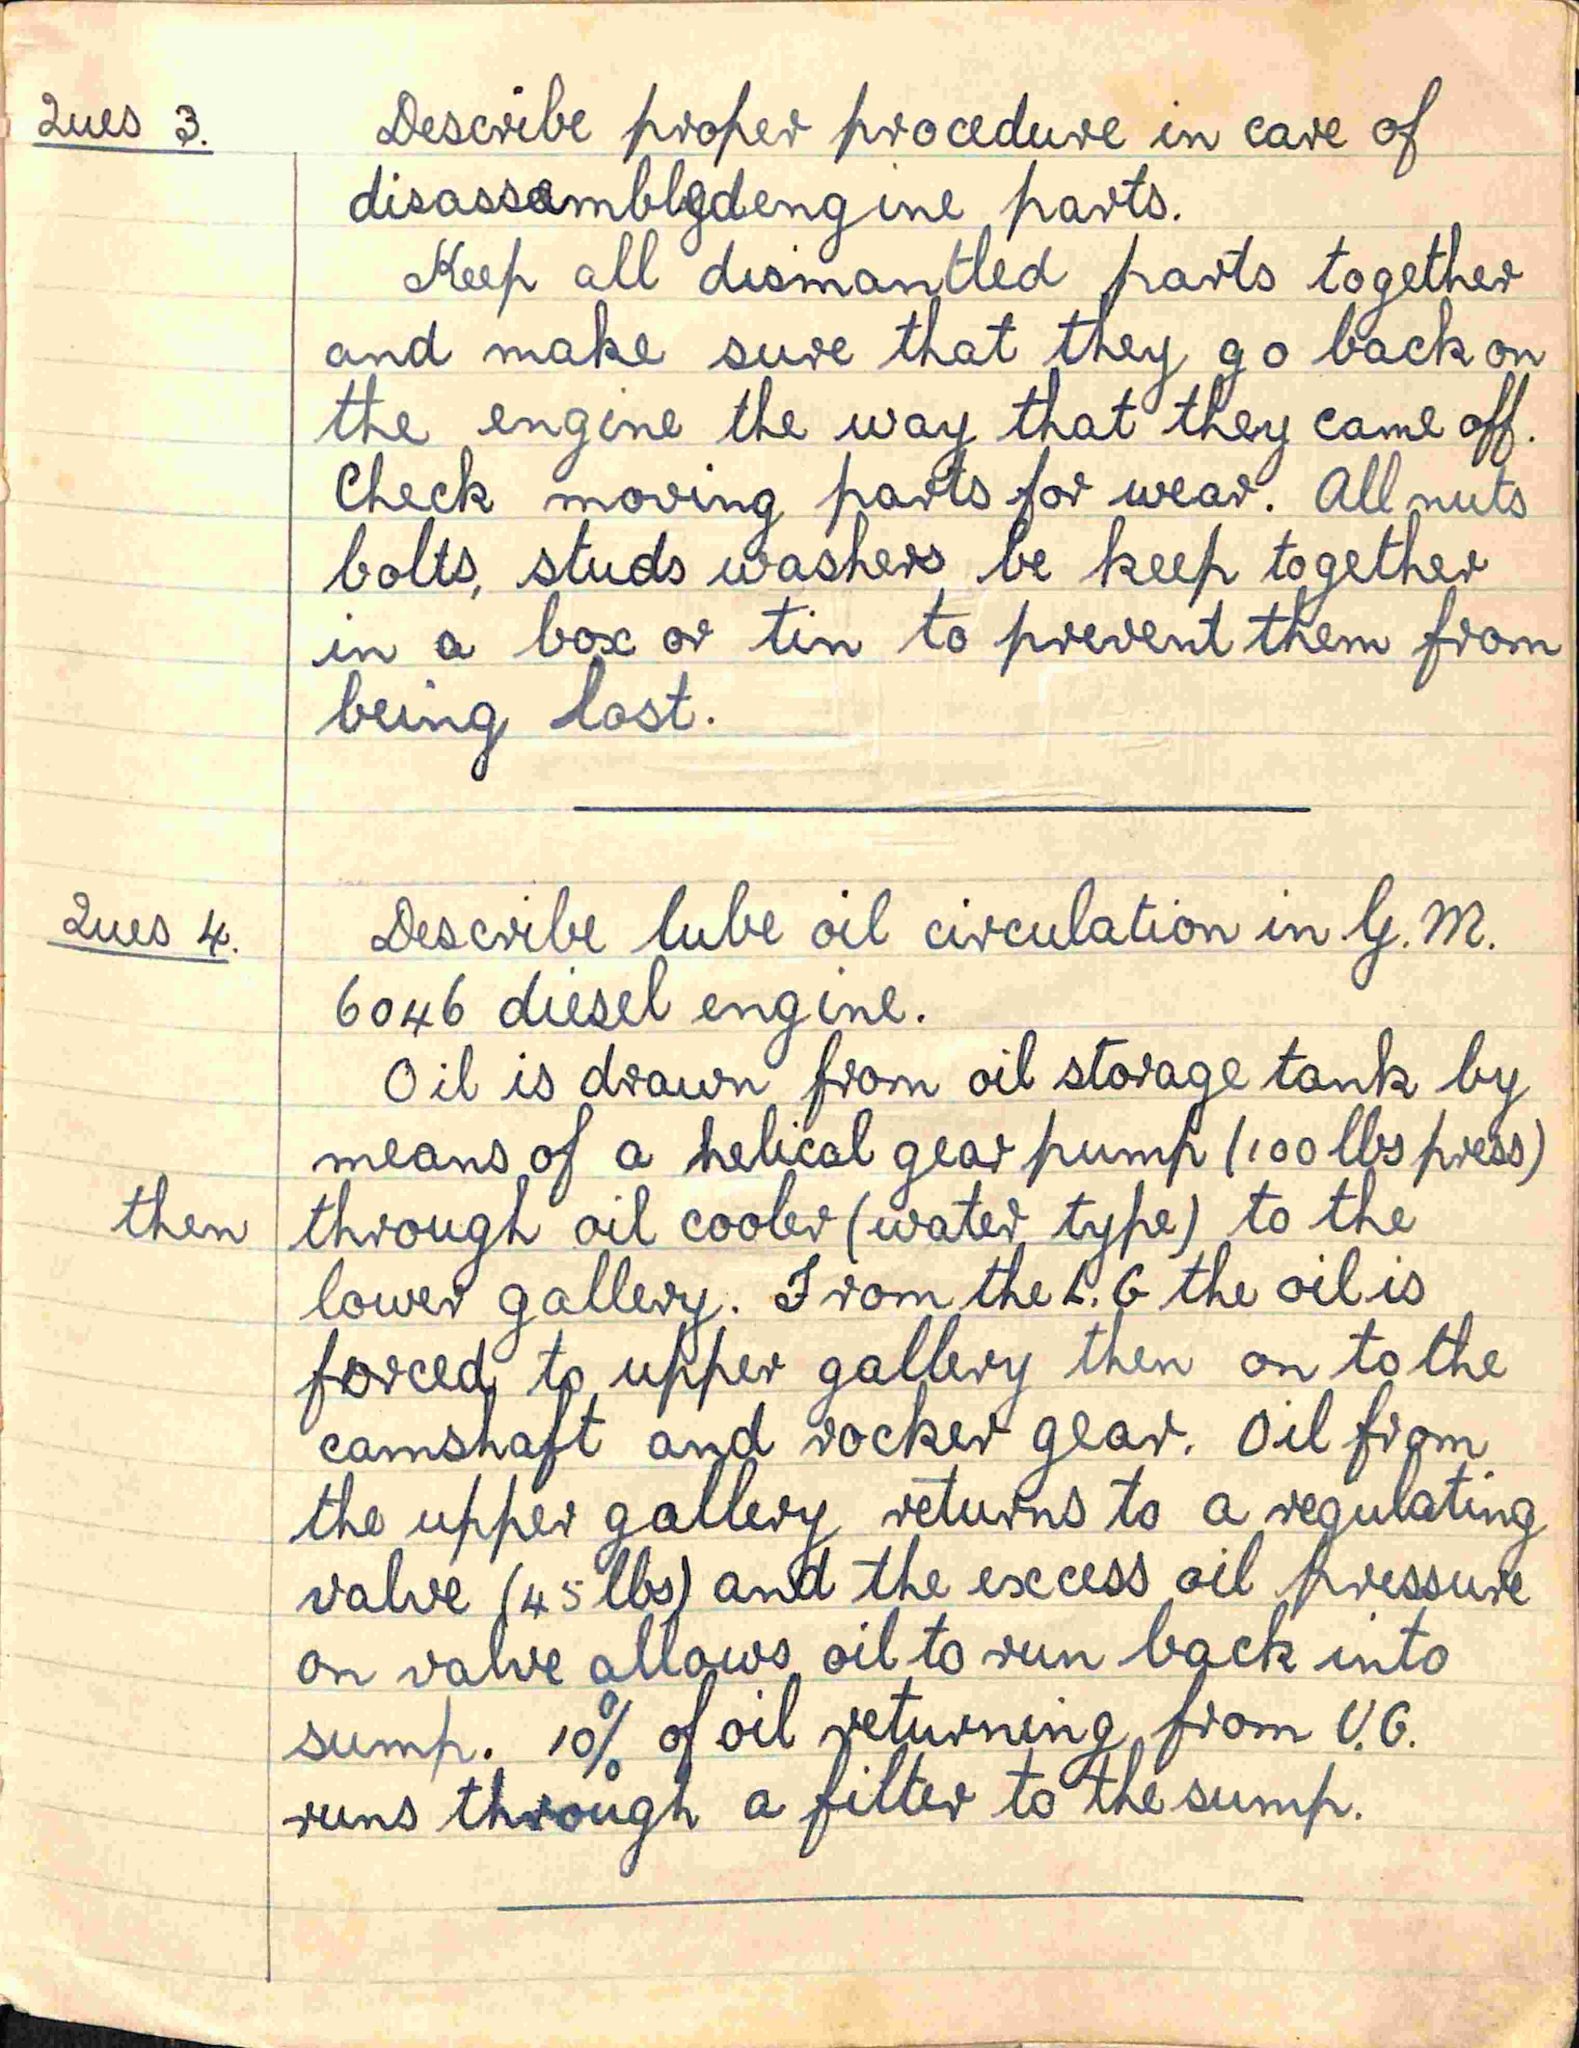 Ques 3. Describe proper procedure in care of
disassembled engine parts.
Keep all dismantled parts together
and make sure that they go back on
the engine the way that they came off.
Check moving parts for wear. All nuts
bolts, studs washers be keep together
in a box or tin to prevent them from
being lost.
Ques 4. Describe lube oil circulation in G.M.
6046 diesel engine.
Oil is drawn from oil storage tank by
means of a helical gear pump (100 lbs press)
then through oil cooler (water type) to the
lower gallery. From the L.G the oil is
forced to upper gallery then on to the
camshaft and rocker gear. Oil from
the upper gallery returns to a regulating
valve (45 lbs) and the excess oil pressure
on valve allows oil to run back into
sump. 10% of oil returning from U.G.
runs through a filter to the sump.